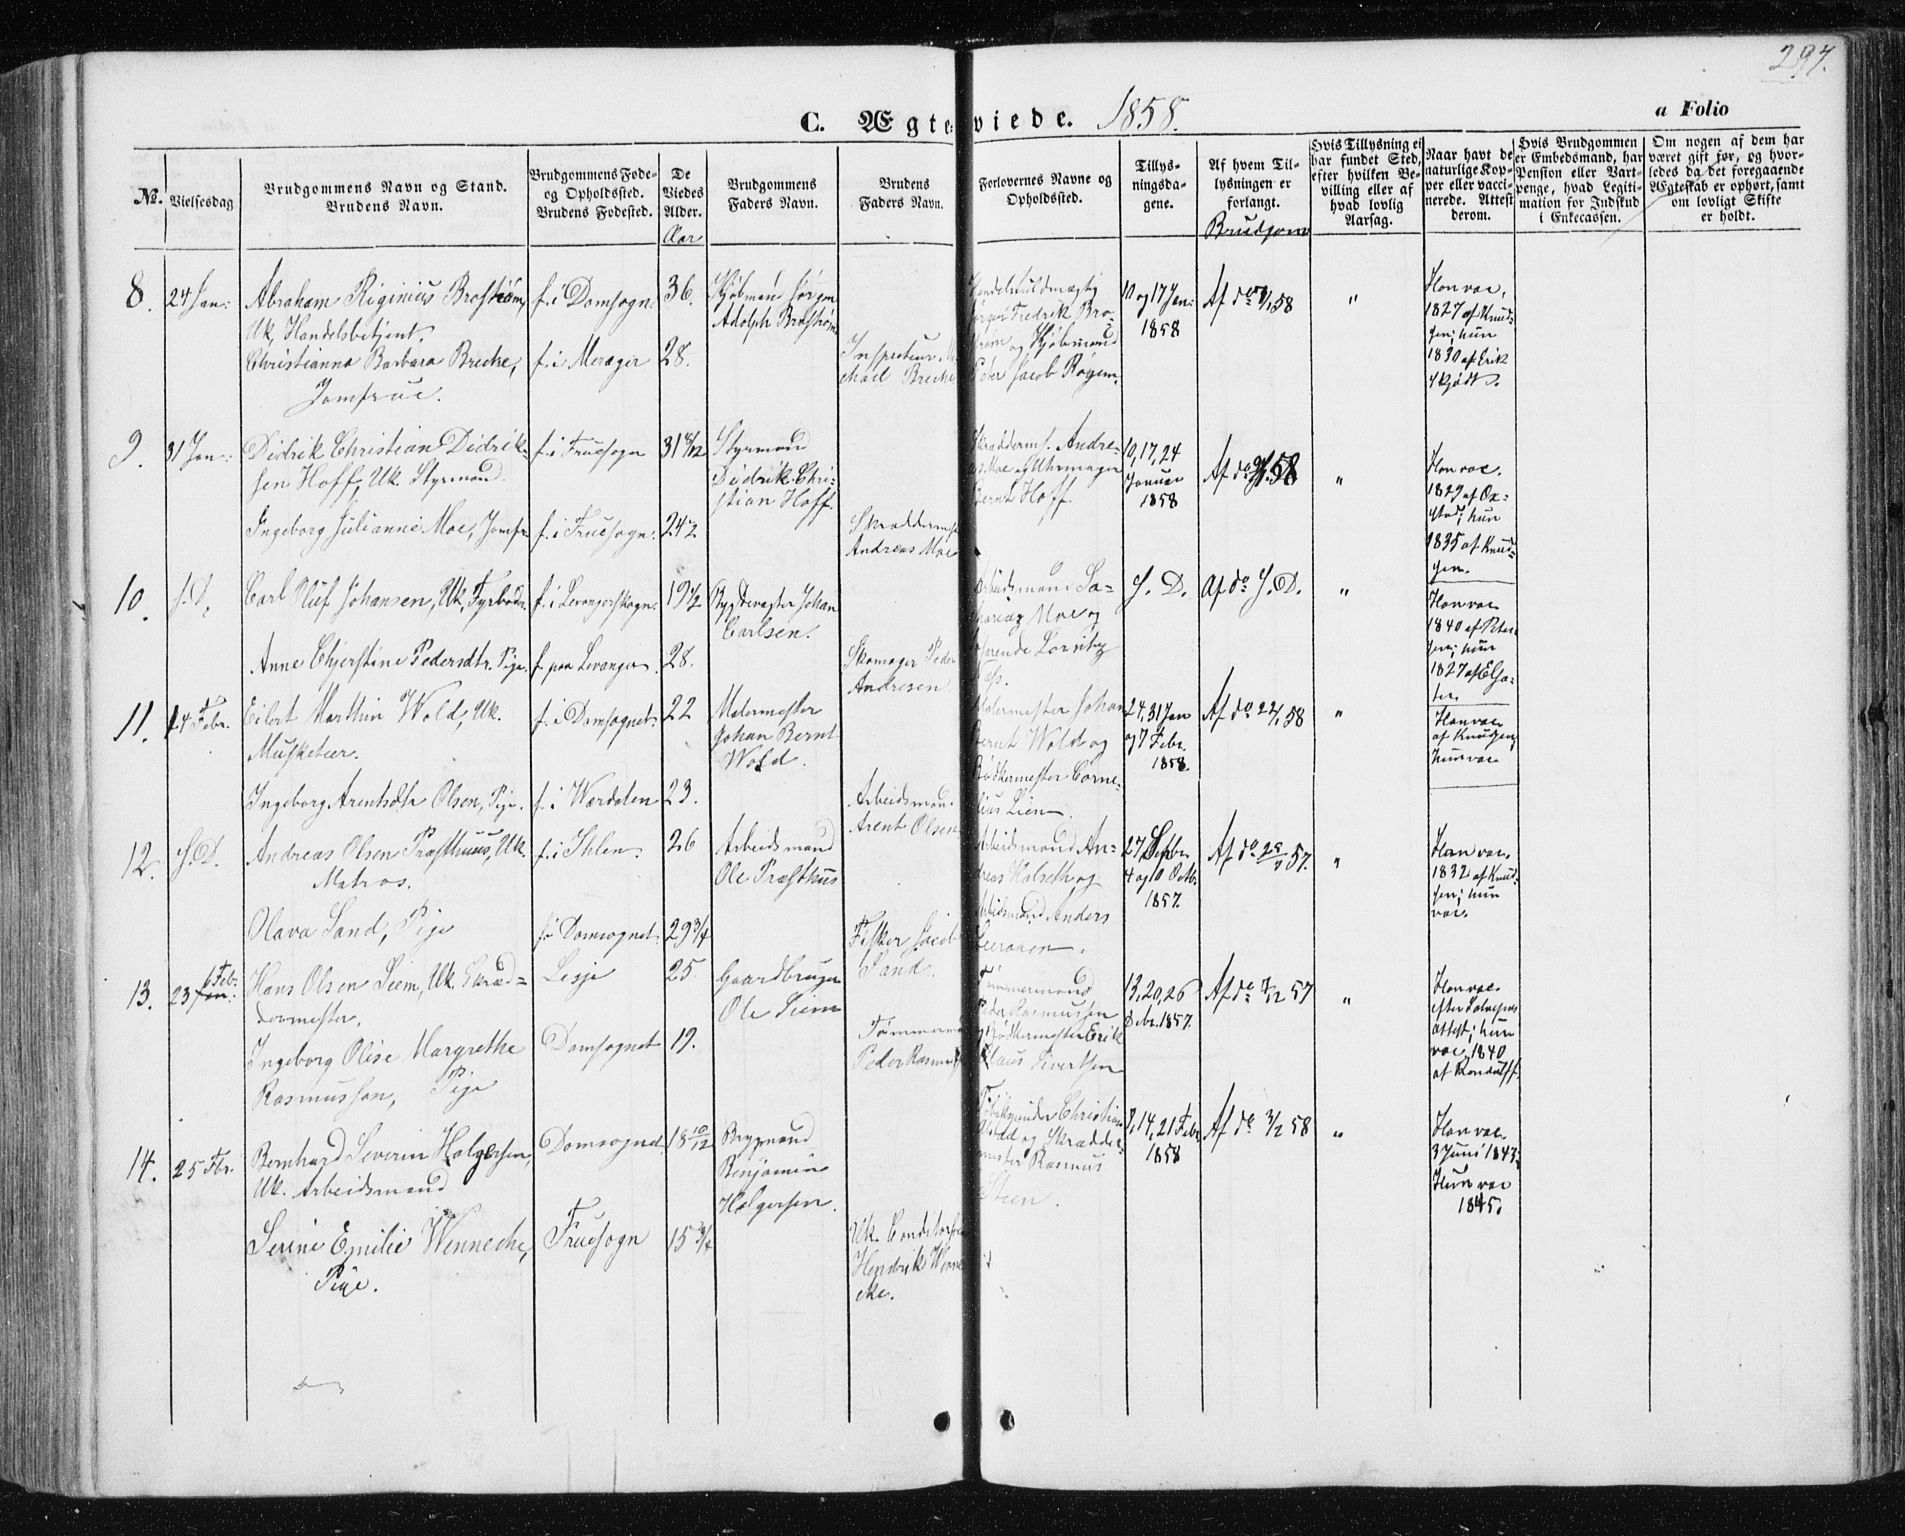 297.
C. Ægteviede. 1858.
a Folio
No.
Vielsesdag
Brudgommens Navn og Stand.
Brudens Navn.
Brudgommens Føde-
og Opholdssted.
Brudens Fødested.
De
Viedes
Alder.
Aar
Brudgommens
Faders Navn.
Brudens
Faders Navn.
Forlovernes Navne og
Opholdssted.
Tillys-
ningsda-
gene.
Af hvem Til-
lysningen er
forlangt.
Brudgom
Hvis Tillysning ei
har fundet Sted,
efter hvilken Be-
villing eller af
hvad lovlig
Aarsag.
Naar havt de
naturlige Kop-
per eller vacci-
nerede. Attest
derom.
Hvis Brudgommen
er Embedsmand, har
Pension eller Vart-
penge, hvad Legiti-
mation for Indskud
i Enkecassen.
Om nogen af dem har
været gift før, og hvor-
ledes da det foregaaende
Ægteskab er ophørt, samt
om lovligt Skifte
er holdt.
8. 24 Jan:
Abraham Riginius Brostrøm,
Uk, Handelsbetjent.
Christianna Barbara Brecke,
Jomfrue.
f. i Domsogn.
f. i Merager
36.
28.
Kjøbmand Jørgen
Adolph Brostrøm
Inspecteur Mi-
chael Brecke
Handelsfuldmægtig
Jørgen Fredrik Bro-
strøm og Kjøbmand
Peder Jacob Røgen.
10 og 17 Jan:
1858
Af do 58
"
Han vac.
1827 af Knud-
sen; hun
1830 af Erik
9. 31 Jan:
Didrik Christian Didrik-
sen Hoff, Uk. Styrmand.
Ingeborg Julianne Moe, Jomfr.
f. i Fruesogn
f. i Fruesogn.
31 8/12
24 1/2
Styrmand
Didrik Chri-
stian Hoff.
Skræddermest
Andreas Moe
Skrædderm. Andre-
as Moe Uhrmager
Bernt Hoff.
10, 17, 24
Januar
1858
Af do 58
"
Han vac.
1829 af Ox-
stad; hun
1835 af Knud-
sen.
10. S.D.
Carl Oluf Johansen, Uk, Fyrbøder
Anne Chjerstine Pedersdtr. Pige
f. i Levangerskogn.
f. paa Levanger
19 1/2
28.
Johan
Carlsen.
Skomager Peder
Andresen
Arbeidsmand Za-
charias Moe og
S. D.
Af do S.D.
"
Han vac
1840 af Peter-
sen; hun
1827
11. 14 Febr.
Eilert Marthin Wold, Uk.
Musketeer.
Ingeborg Arentsdtr Olsen, Pige.
f. i Domsognet.
f. i Værdalen
22
23.
Malermester
Johan Bernt
Wold.
Arbeidsmand
Arent Olsen
Malermester Johan
Bernt Wold og
Bødkermester Corne-
lius Lien.
24, 31 Jan
og 7 Febr.
1858.
Af do 22/1 58
"
Han vac
af Knudsen;
hun vac
12. S.D.
Andreas Olsen Præsthuus, Uk.
Matros.
Olava Sand, Pige
f. i Ihlen.
f. i Domsognet.
26
29 3/4
Arbeidsmand
Ole Præsthus
Fisker Jacob
Sand.
Arbeidsmand An-
dreas Holseth og
Arbeidsmand Anders
27 Septbr.
4 og 10 Octbr.
1857.
Af do 57.
"
Han vac.
1832 af Knud-
sen; hun
vac.
13. 23 Febr.
Hans Olsen Siem, Uk. Skræd-
dermester.
Ingeborg Olise Margrethe
Rasmussen, Pige
Lesje
Domsognet
25
19.
Gaardbruger
Ole Siem
Tømmermand
Peder Rasmussen
Tømmermand
Peder Rasmussen
og Bødkermester Erik
Claus Sivertsen
13, 20, 26
Debr. 1857.
Af do 7/12 57
"
Han vac.
efter
attest; hun
vac. 1840
af Rondulff.
14. 25 Fbr.
Bernhard Severin Holgersen,
Uk. Arbeidsmand
Serine Emilie Wennecke,
Pige.
Domsognet
Fruesogn
18 10/12
15 3/4
Brygmand
Benjamin
Holgersen.
Uk.
Hendrik Wenne-
cke.
Christian
og Skrædder-
mester Rasmus
Steen.
7, 14, 21 Febr
1858
Af do 3/2 58
"
Han vac.
3 Juni 1843;
Hun vac
1845.